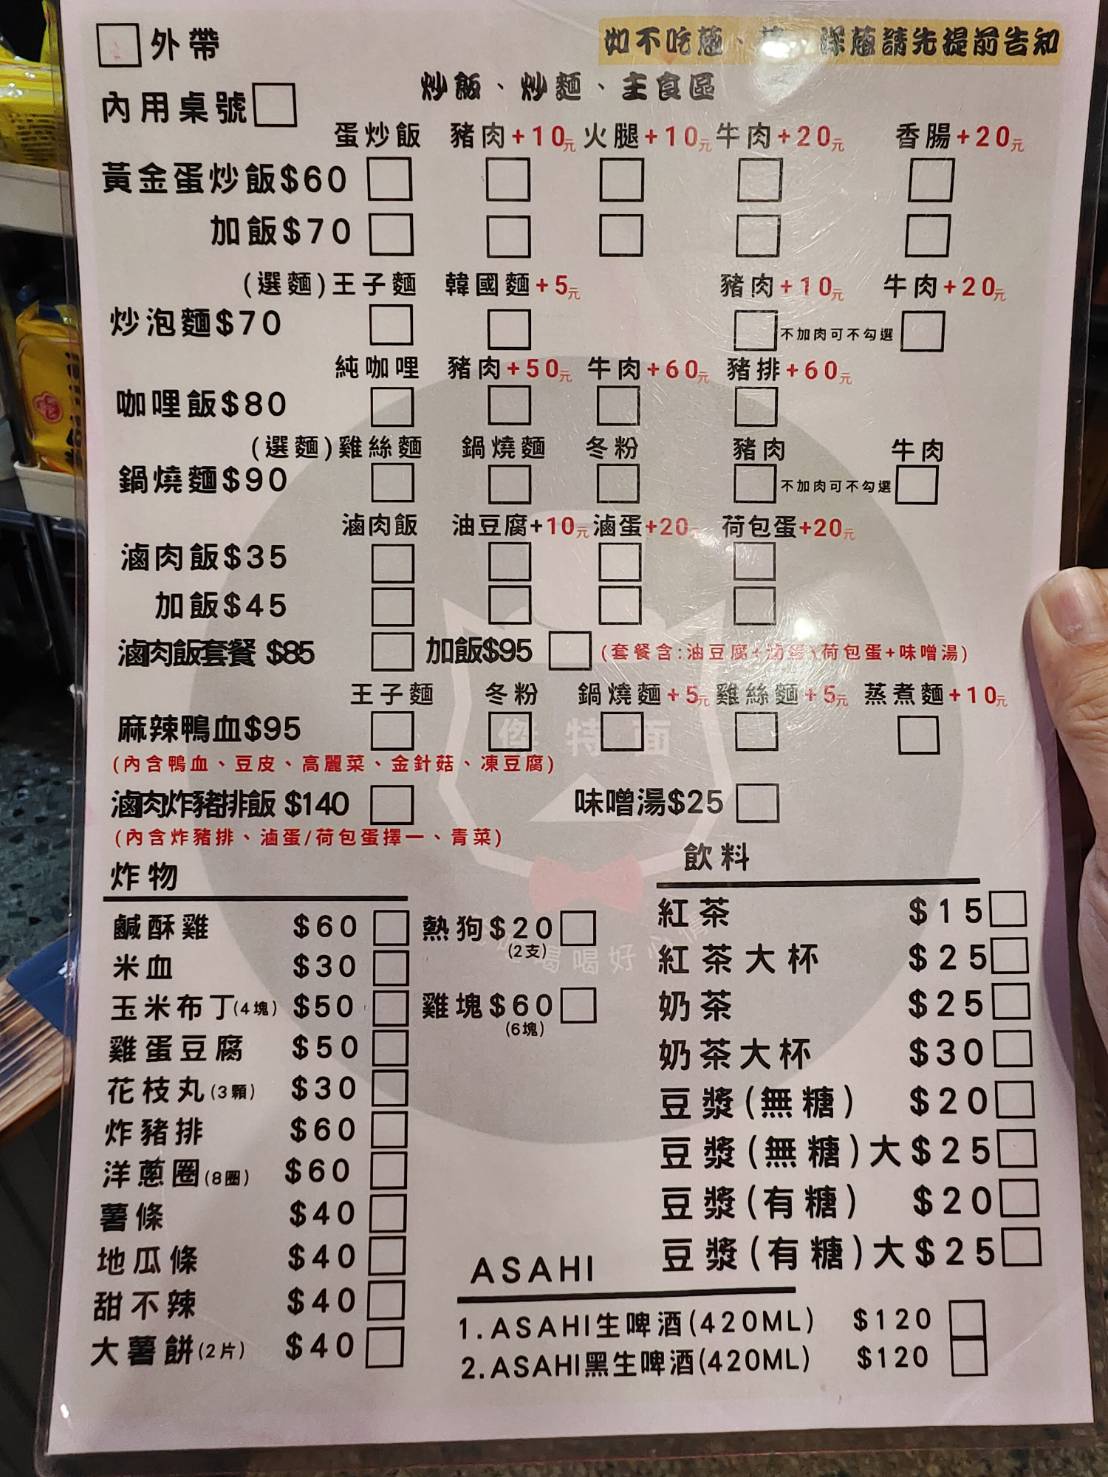 外帶
如不吃麵、 請先提前告知
炒飯、炒麵、主食區
內用桌號
蛋炒飯 豬肉+10元 火腿+10元 牛肉+20元 香腸+20元
黃金蛋炒飯$60
加飯$70
(選麵)王子麵 韓國麵+5元 豬肉+10元 牛肉+20元
炒泡麵$70 不加肉可不勾選
純咖哩 豬肉+50元 牛肉+60元 豬排+60元
咖哩飯$80
(選麵)雞絲麵 鍋燒麵 冬粉 豬肉 牛肉
鍋燒麵$90 不加肉可不勾選
滷肉飯 油豆腐+10元 滷蛋+20元 荷包蛋+20元
滷肉飯$35
加飯$45
滷肉飯套餐 $85 加飯$95 (套餐含:油豆腐+滷蛋/荷包蛋+味噌湯)
王子麵 冬粉 鍋燒麵+5元 雞絲麵+5元 蒸煮麵+10元
麻辣鴨血$95
傑特面
(內含鴨血、豆皮、高麗菜、金針菇、凍豆腐)
滷肉炸豬排飯 $140 味噌湯$25
(內含炸豬排、滷蛋/荷包蛋擇一、青菜)
炸物
鹹酥雞 $60
米血 $30
玉米布丁(4塊) $50
雞蛋豆腐 $50
花枝丸(3顆) $30
炸豬排 $60
洋蔥圈(8圈) $60
薯條 $40
地瓜條 $40
甜不辣 $40
大薯餅(2片) $40
熱狗$20
(2支)
喝喝好心情
雞塊$60
(6塊)
飲料
紅茶 $15
紅茶大杯 $25
奶茶 $25
奶茶大杯 $30
豆漿(無糖) $20
豆漿(無糖)大$25
豆漿(有糖) $20
豆漿(有糖)大$25
ASAHI
1.ASAHI生啤酒(420ML) $120
2.ASAHI黑生啤酒(420ML) $120